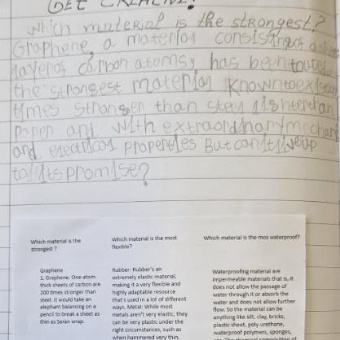 GET CREATIVE!
Which material is the strongest?
Graphene, a material consisting of a
layer of carbon atoms, has been touted
the strongest material known to exist
times stronger than steel lighter than
paper and with extraordinary mechan
and electrical properties But can it live up
to its promise?
Which material is the
strongest ?
Graphene
1. Graphene. One-atom
thick sheets of carbon are
200 times stronger than
steel. It would take an
elephant balancing on a
pencil to break a sheet as
thin as Saran wrap.
Which material is the most
flexible?
Rubber: Rubber's an
extremely elastic material,
making it a very flexible and
highly adaptable resource
that's used in a lot of different
ways. Metal: While most
metals aren't very elastic, they
can be very plastic under the
right circumstances, such as
when hammered very thin.
Which material is the mos waterproof?
Waterproofing material are
impermeable materials that is, it
does not allow the passage of
water through it or absorb the
water and does not allow further
flow. So the material can be
anything like silt, clay, bricks,
plastic sheet, poly urethane,
waterproof polymers, sponges,